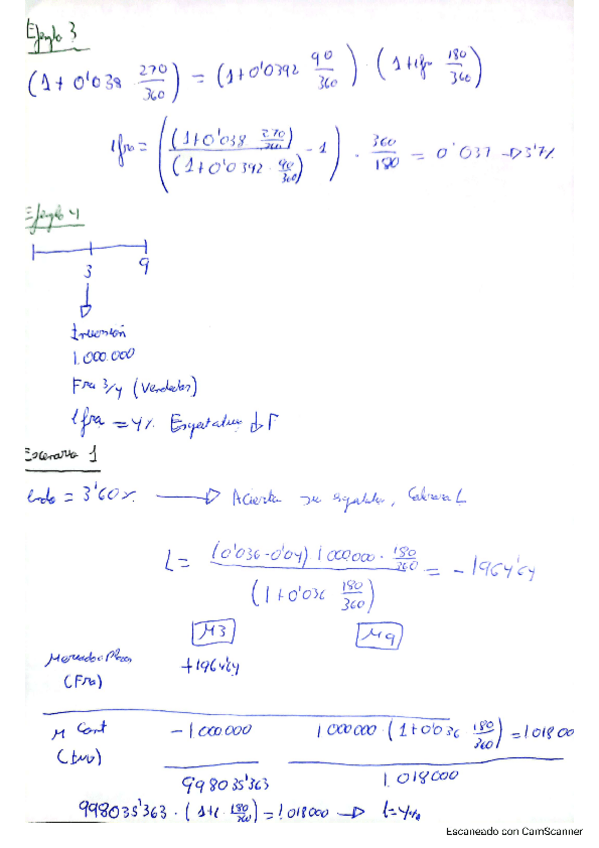 Ejemplo 3
(1+0'038 270/360) = (1+0'0392 90/360) · (1+ifra 180/360)
ifra = ((1+0'038 270/360)/(1+0'0392 · 90/360) - 1) · 360/180 = 0'037 → 3'7%
Ejemplo 4
3 9
Inversión
1.000.000
Fra 3/4 (Vendedor)
ifra = 4%
Escenario 1
= 3'60%. → Acierta su
L = (0'036-0'04) 1000.000 · 180/360 / (1+0'036 180/360) = -1964'64
M3 M9
(Fra) +1964'64
M Cont -1000000 1000000 · (1+0'036 180/360) = 101800
998035'363 1.018000
998035'363 · (1+i · 180/360) = 1.018000 → i=4%
Escaneado con CamScanner